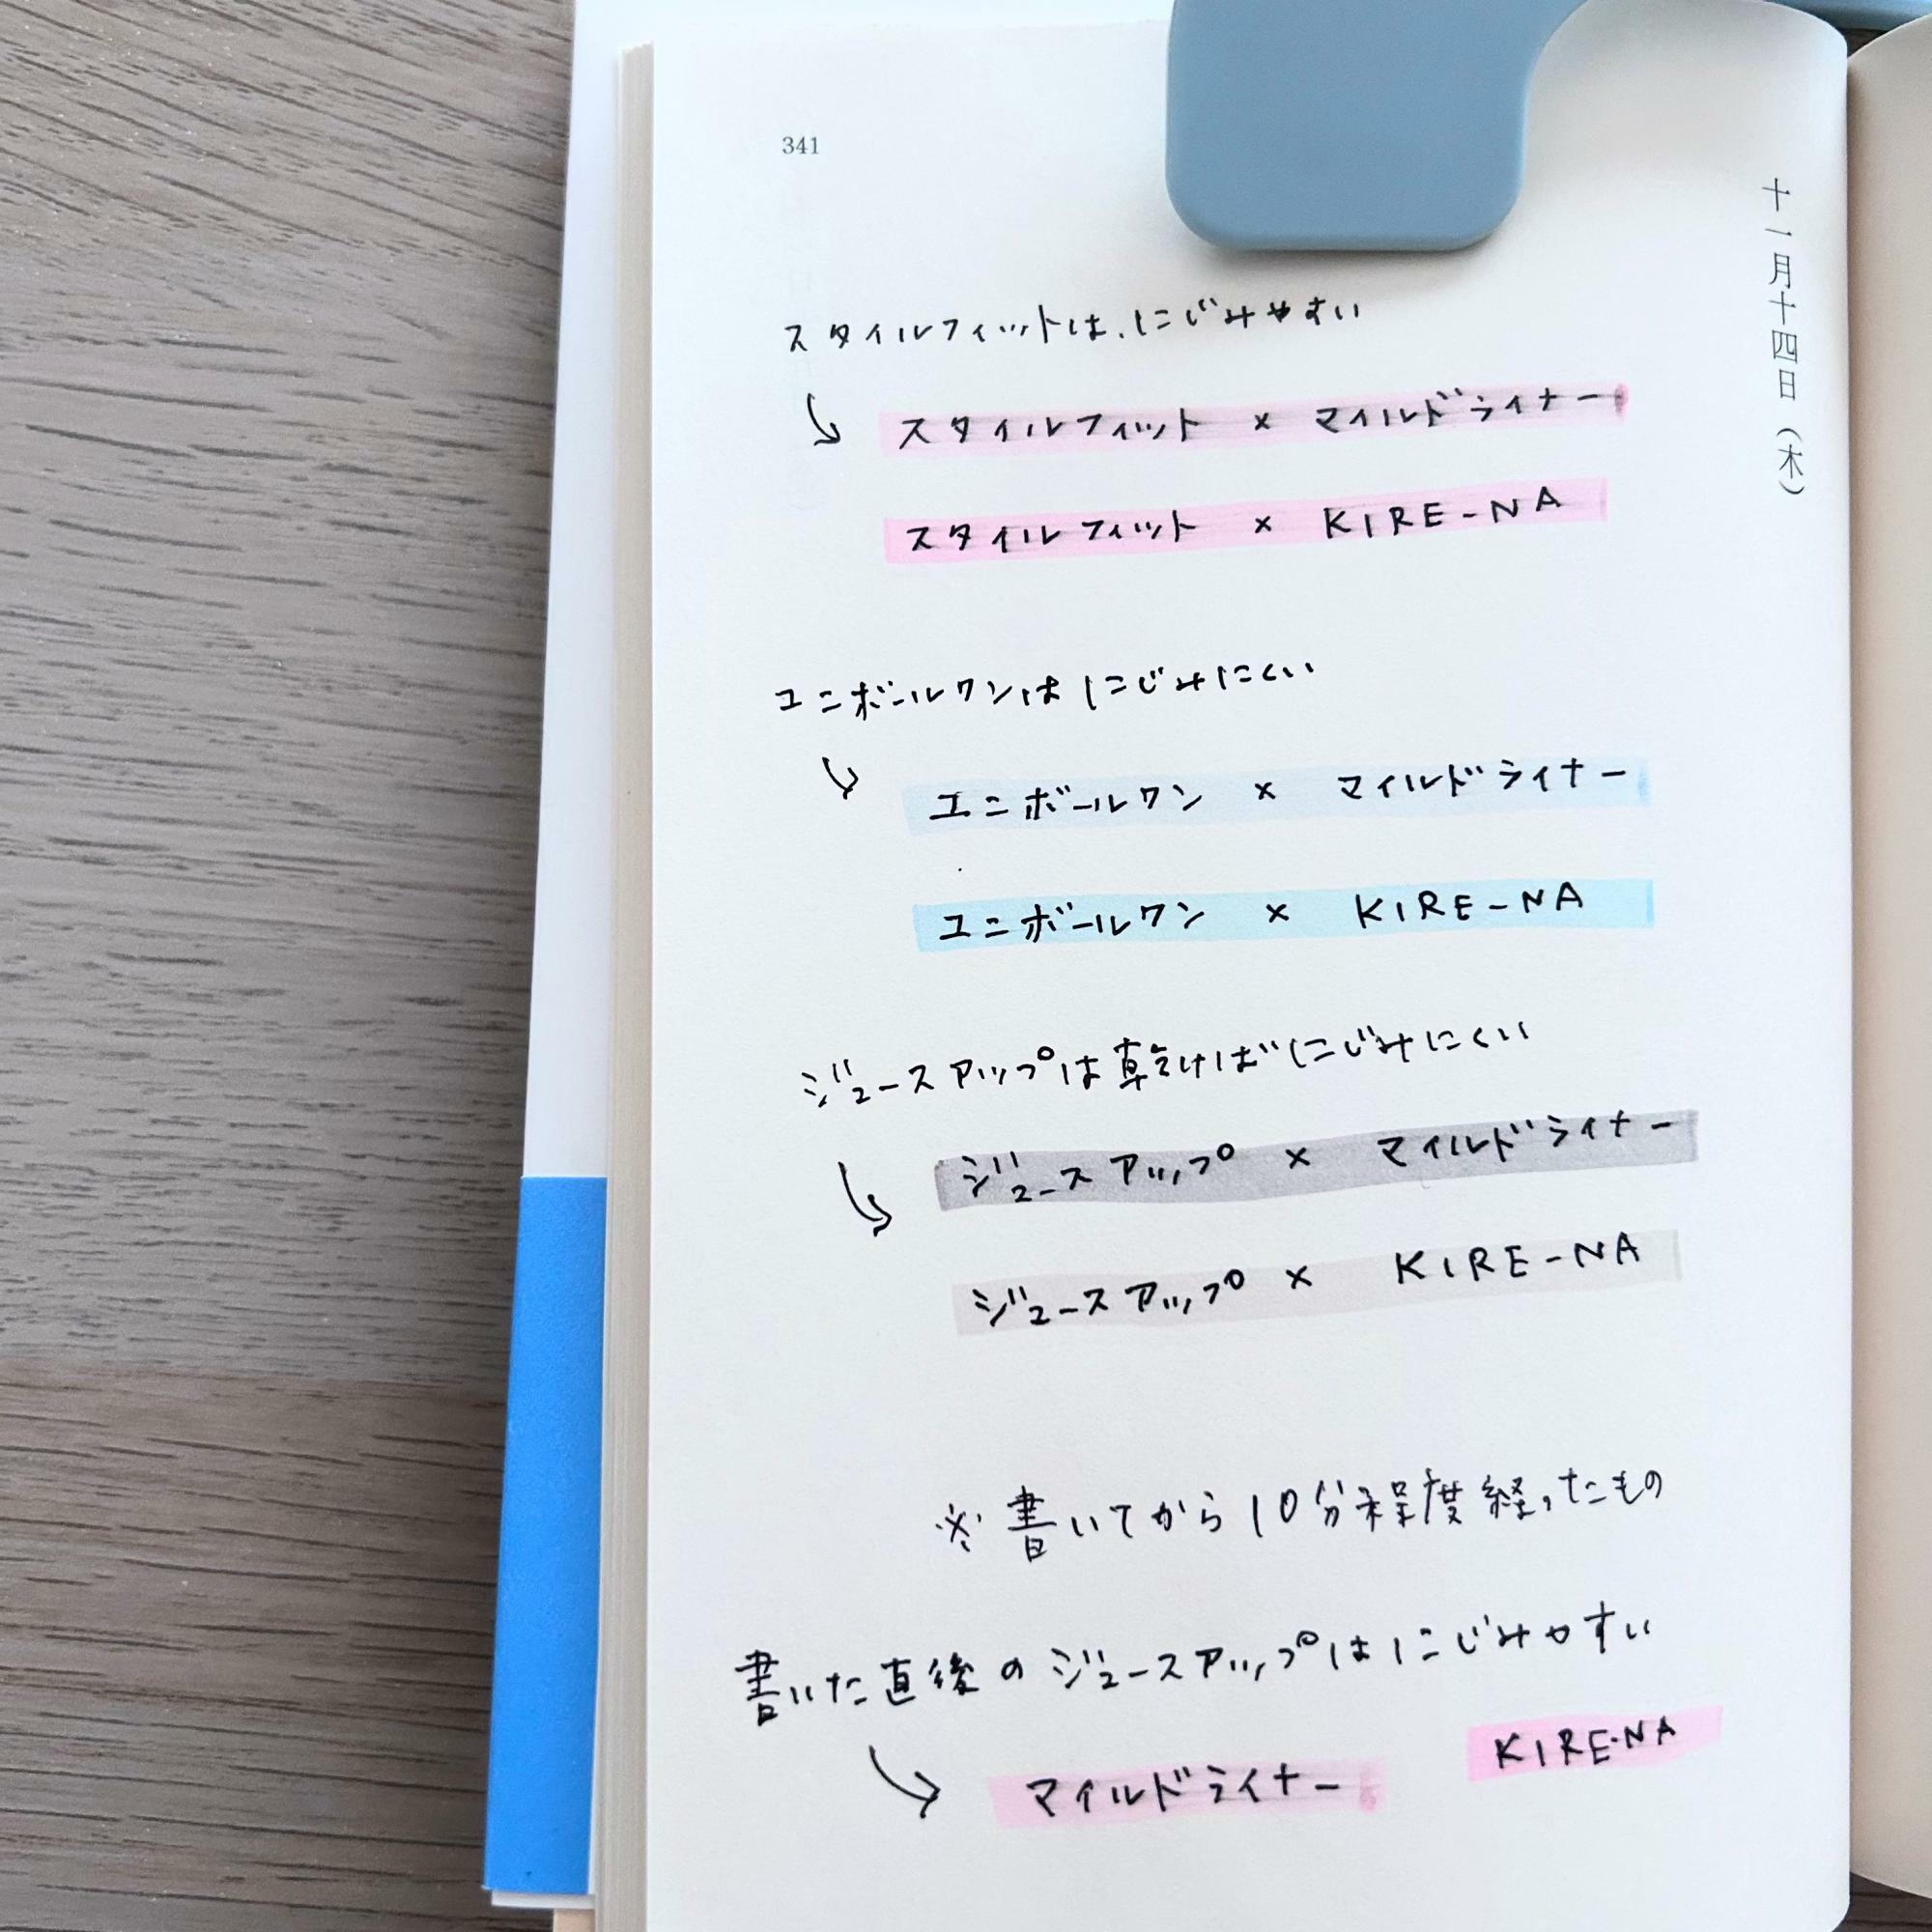 341
十一月十四日(木)
スタイルフィットは、にじみやすい
スタイルフィット × マイルドライナー
スタイルフィット × KIRE-NA
ユニボールワンはにじみにくい
ユニボールワン × マイルドライナー
ユニボールワン × KIRE-NA
ジュースアップは乾けばにじみにくい
ジュースアップ × マイルドライナー
ジュースアップ × KIRE-NA
※書いてから10分程度経ったもの
書いた直後のジュースアップはにじみやすい
マイルドライナー KIRE-NA